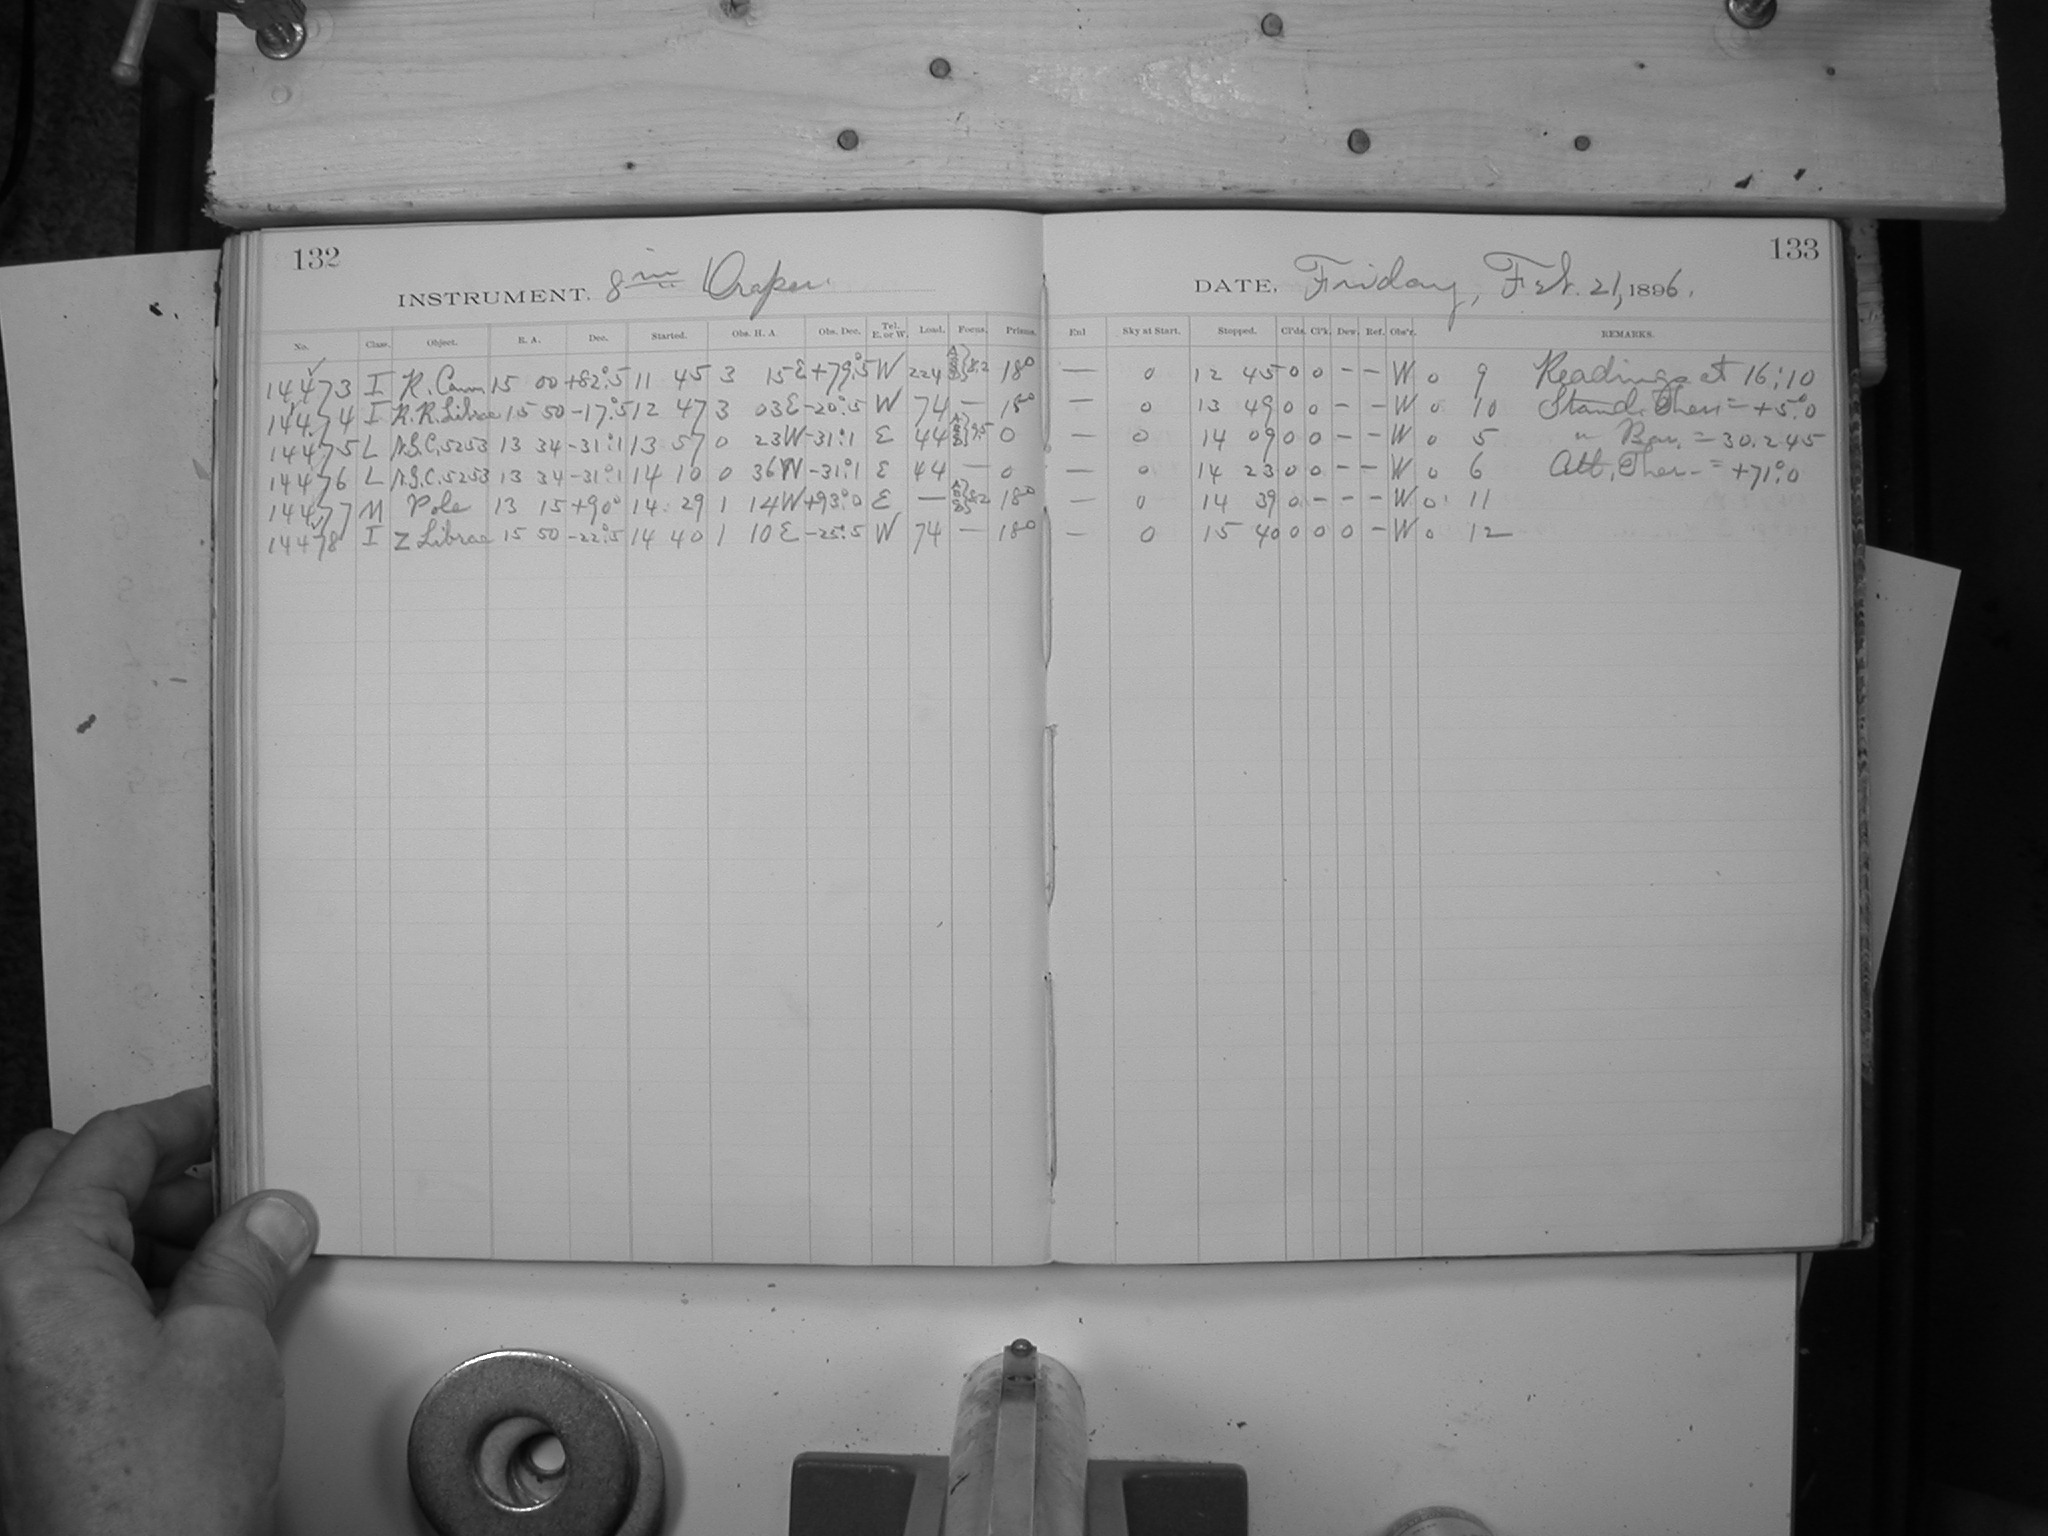 132
INSTRUMENT. 8 in Draper.
DATE, Friday, Feb. 21, 1896.
133
No. Class. Object. R. A. Dec. Started. Obs. H. A. Obs. Dec. Tel. E. or W. Load. Focus. Prisms. Enl Sky at Start. Stopped. Cl'ds. Cl'k. Dew. Ref. Obs'r. REMARKS.
14473 I R. Cam 15 00 +82°.5 11 45 3 15 E +79°.5 W 224 8.2 18° — 0 12 45 0 0 - - W 0 9 Readings at 16:10
14474 I R.R. Librae 15 50 -17°.5 12 47 3 03 E -20°.5 W 74 — 18° — 0 13 49 0 0 - - W 0 10 Stand. Ther. = +5°.0
14475 L N.G.C. 5253 13 34 -31°.1 13 57 0 23 W -31°.1 E 44 9.5 0 — 0 14 09 0 0 - - W 0 5 " Bar. = 30.245
14476 L N.G.C. 5253 13 34 -31°.1 14 10 0 36 W -31°.1 E 44 — 0 — 0 14 23 0 0 - - W 0 6 Att. Ther. = +71°.0
14477 M Pole 13 15 +90° 14 29 1 14 W +93°.0 E — 8.2 18° — 0 14 39 0 - - - W 0 11
14478 I Z Librae 15 50 -22°.5 14 40 1 10 E -25°.5 W 74 — 18° — 0 15 40 0 0 0 - W 0 12